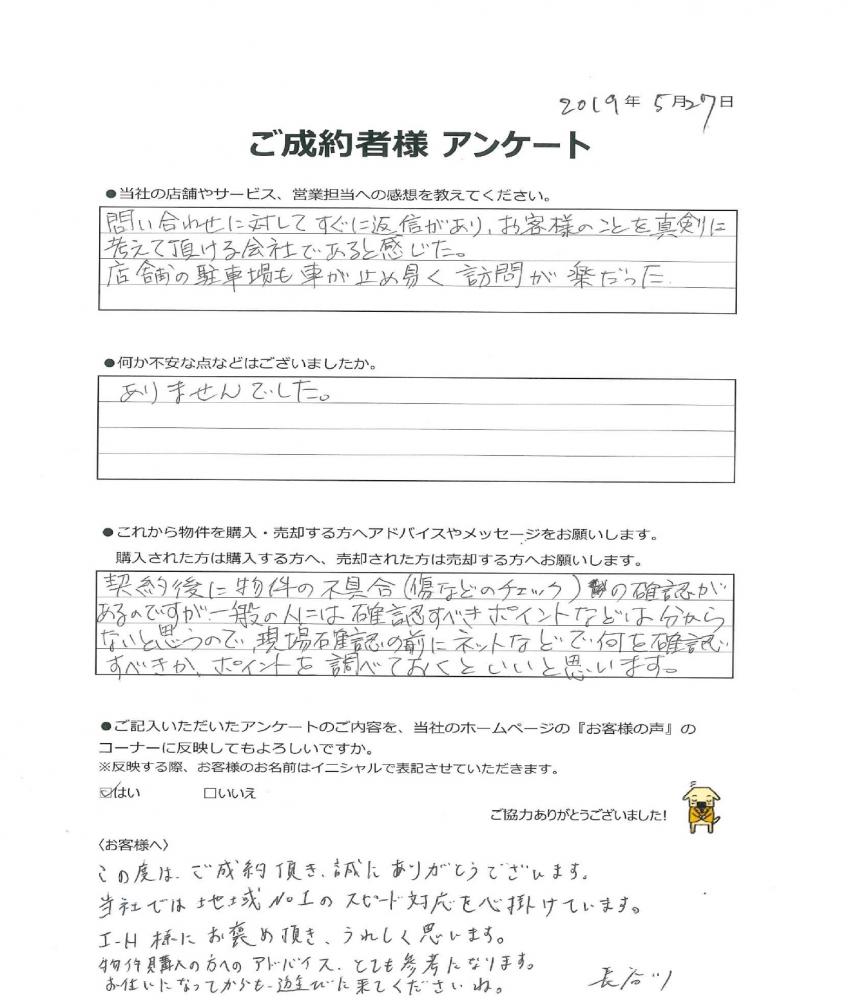 2019年 5月27日
ご成約者様 アンケート
●当社の店舗やサービス、営業担当への感想を教えてください。
問い合わせに対してすぐに返信があり、お客様のことを真剣に
考えて頂ける会社であると感じた。
店舗の駐車場も車が止め易く訪問が楽だった
●何か不安な点などはございましたか。
ありませんでした。
●これから物件を購入・売却する方へアドバイスやメッセージをお願いします。
購入された方は購入する方へ、売却された方は売却する方へお願いします。
契約後に物件の不具合(傷などのチェック)の確認が
あるのですが、一般の人には確認すべきポイントなどは分から
ないと思うので、現場確認の前にネットなどで何を確認
すべきか、ポイントを調べておくといいと思います。
●ご記入いただいたアンケートのご内容を、当社のホームページの『お客様の声』の
コーナーに反映してもよろしいですか。
※反映する際、お客様のお名前はイニシャルで表記させていただきます。
☑はい □いいえ
ご協力ありがとうございました!
〈お客様へ〉
この度は、ご成約頂き、誠にありがとうございます。
当社では地域No1のスピード対応を心掛けています。
I-H様にお褒め頂き、うれしく思います。
物件購入の方へのアドバイス、とても参考になります。
お住いになってからも遊びに来てくださいね。
長谷川